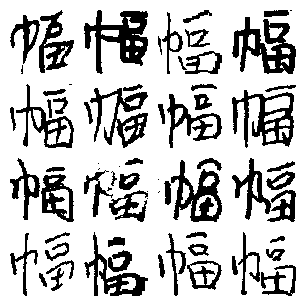 幅幅幅幅
幅幅幅幅
幅幅幅幅
幅幅幅幅